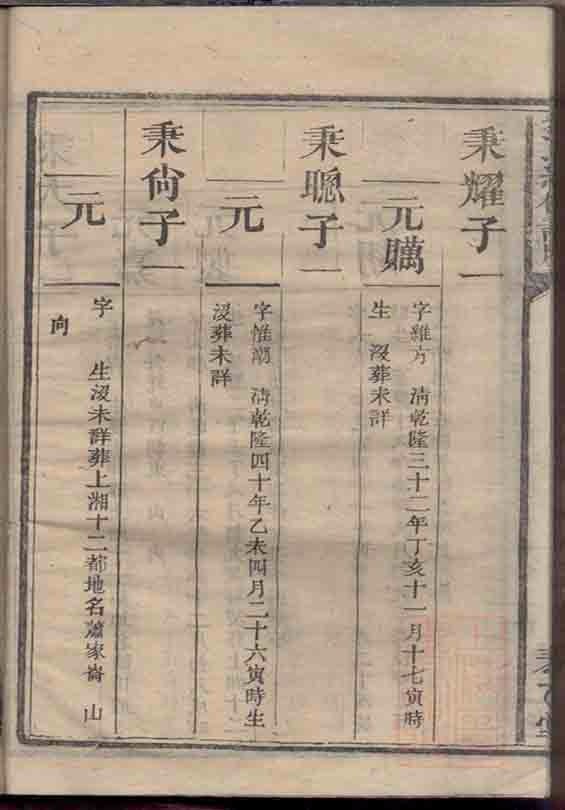 秉耀子一
元䮽
字維方　清乾隆三十二年丁亥十一月十七寅時
生　沒葬未詳
秉聰子一
元
字惟潮　清乾隆四十年乙未四月二十六寅時生
沒葬未詳
秉尙子一
元
字　生沒未詳葬上湘十二都地名蕭家崙　山
向